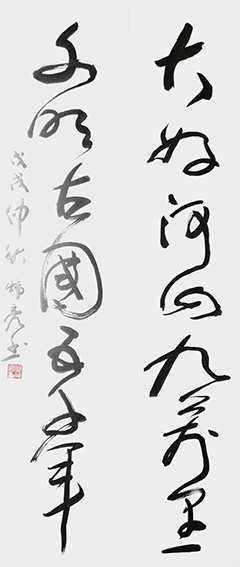 大好河山九万里
文明古國五千年
戊戌仲秋